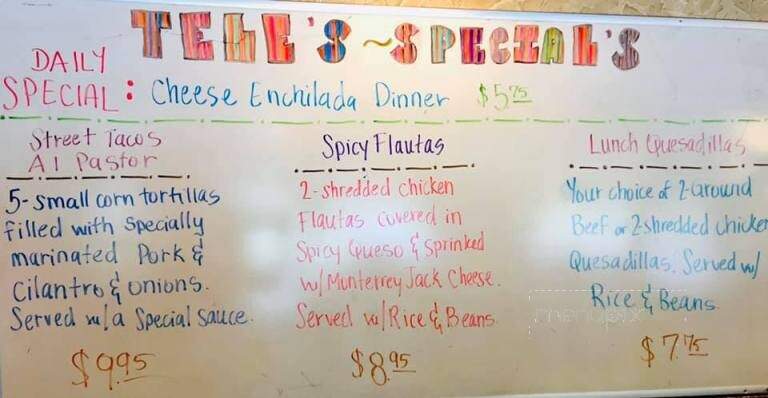 TELE'S ~ SPECIAL'S
DAILY
SPECIAL: Cheese Enchilada Dinner $5.75
Street Tacos
Al Pastor
5-small corn tortillas
filled with Specially
marinated Pork &
Cilantro & onions.
Served w/a Special Sauce.
$9.95
Spicy Flautas
2-shredded chicken
Flautas covered in
Spicy Queso & Sprinked
w/Monterrey Jack Cheese.
Served w/Rice & Beans
$8.95
Lunch Quesadillas
Your choice of 2-Ground
Beef or 2-shredded chicken
Quesadillas. Served w/
Rice & Beans
menupix
$7.75